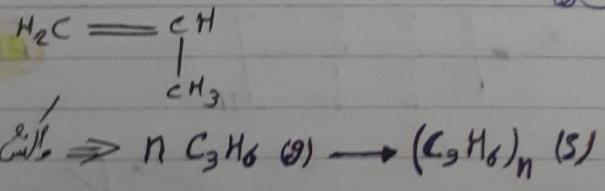 H₂C = CH
|
CH₃
⇒ n C₃H₆ (g) → (C₃H₆)ₙ (s)